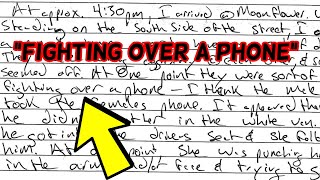 At approx. 4:30pm, I arrived @ Moonflower.
Standing on the South Side of the Street, I
"FIGHTING OVER A PHONE"
seemed off. At one point they were sort of
fighting over a phone - I think the male
took the females phone. It appeared
he didn't her in the white van.
he got in the drivers seat & she
him. At point She was punching h
in the arm face & trying to